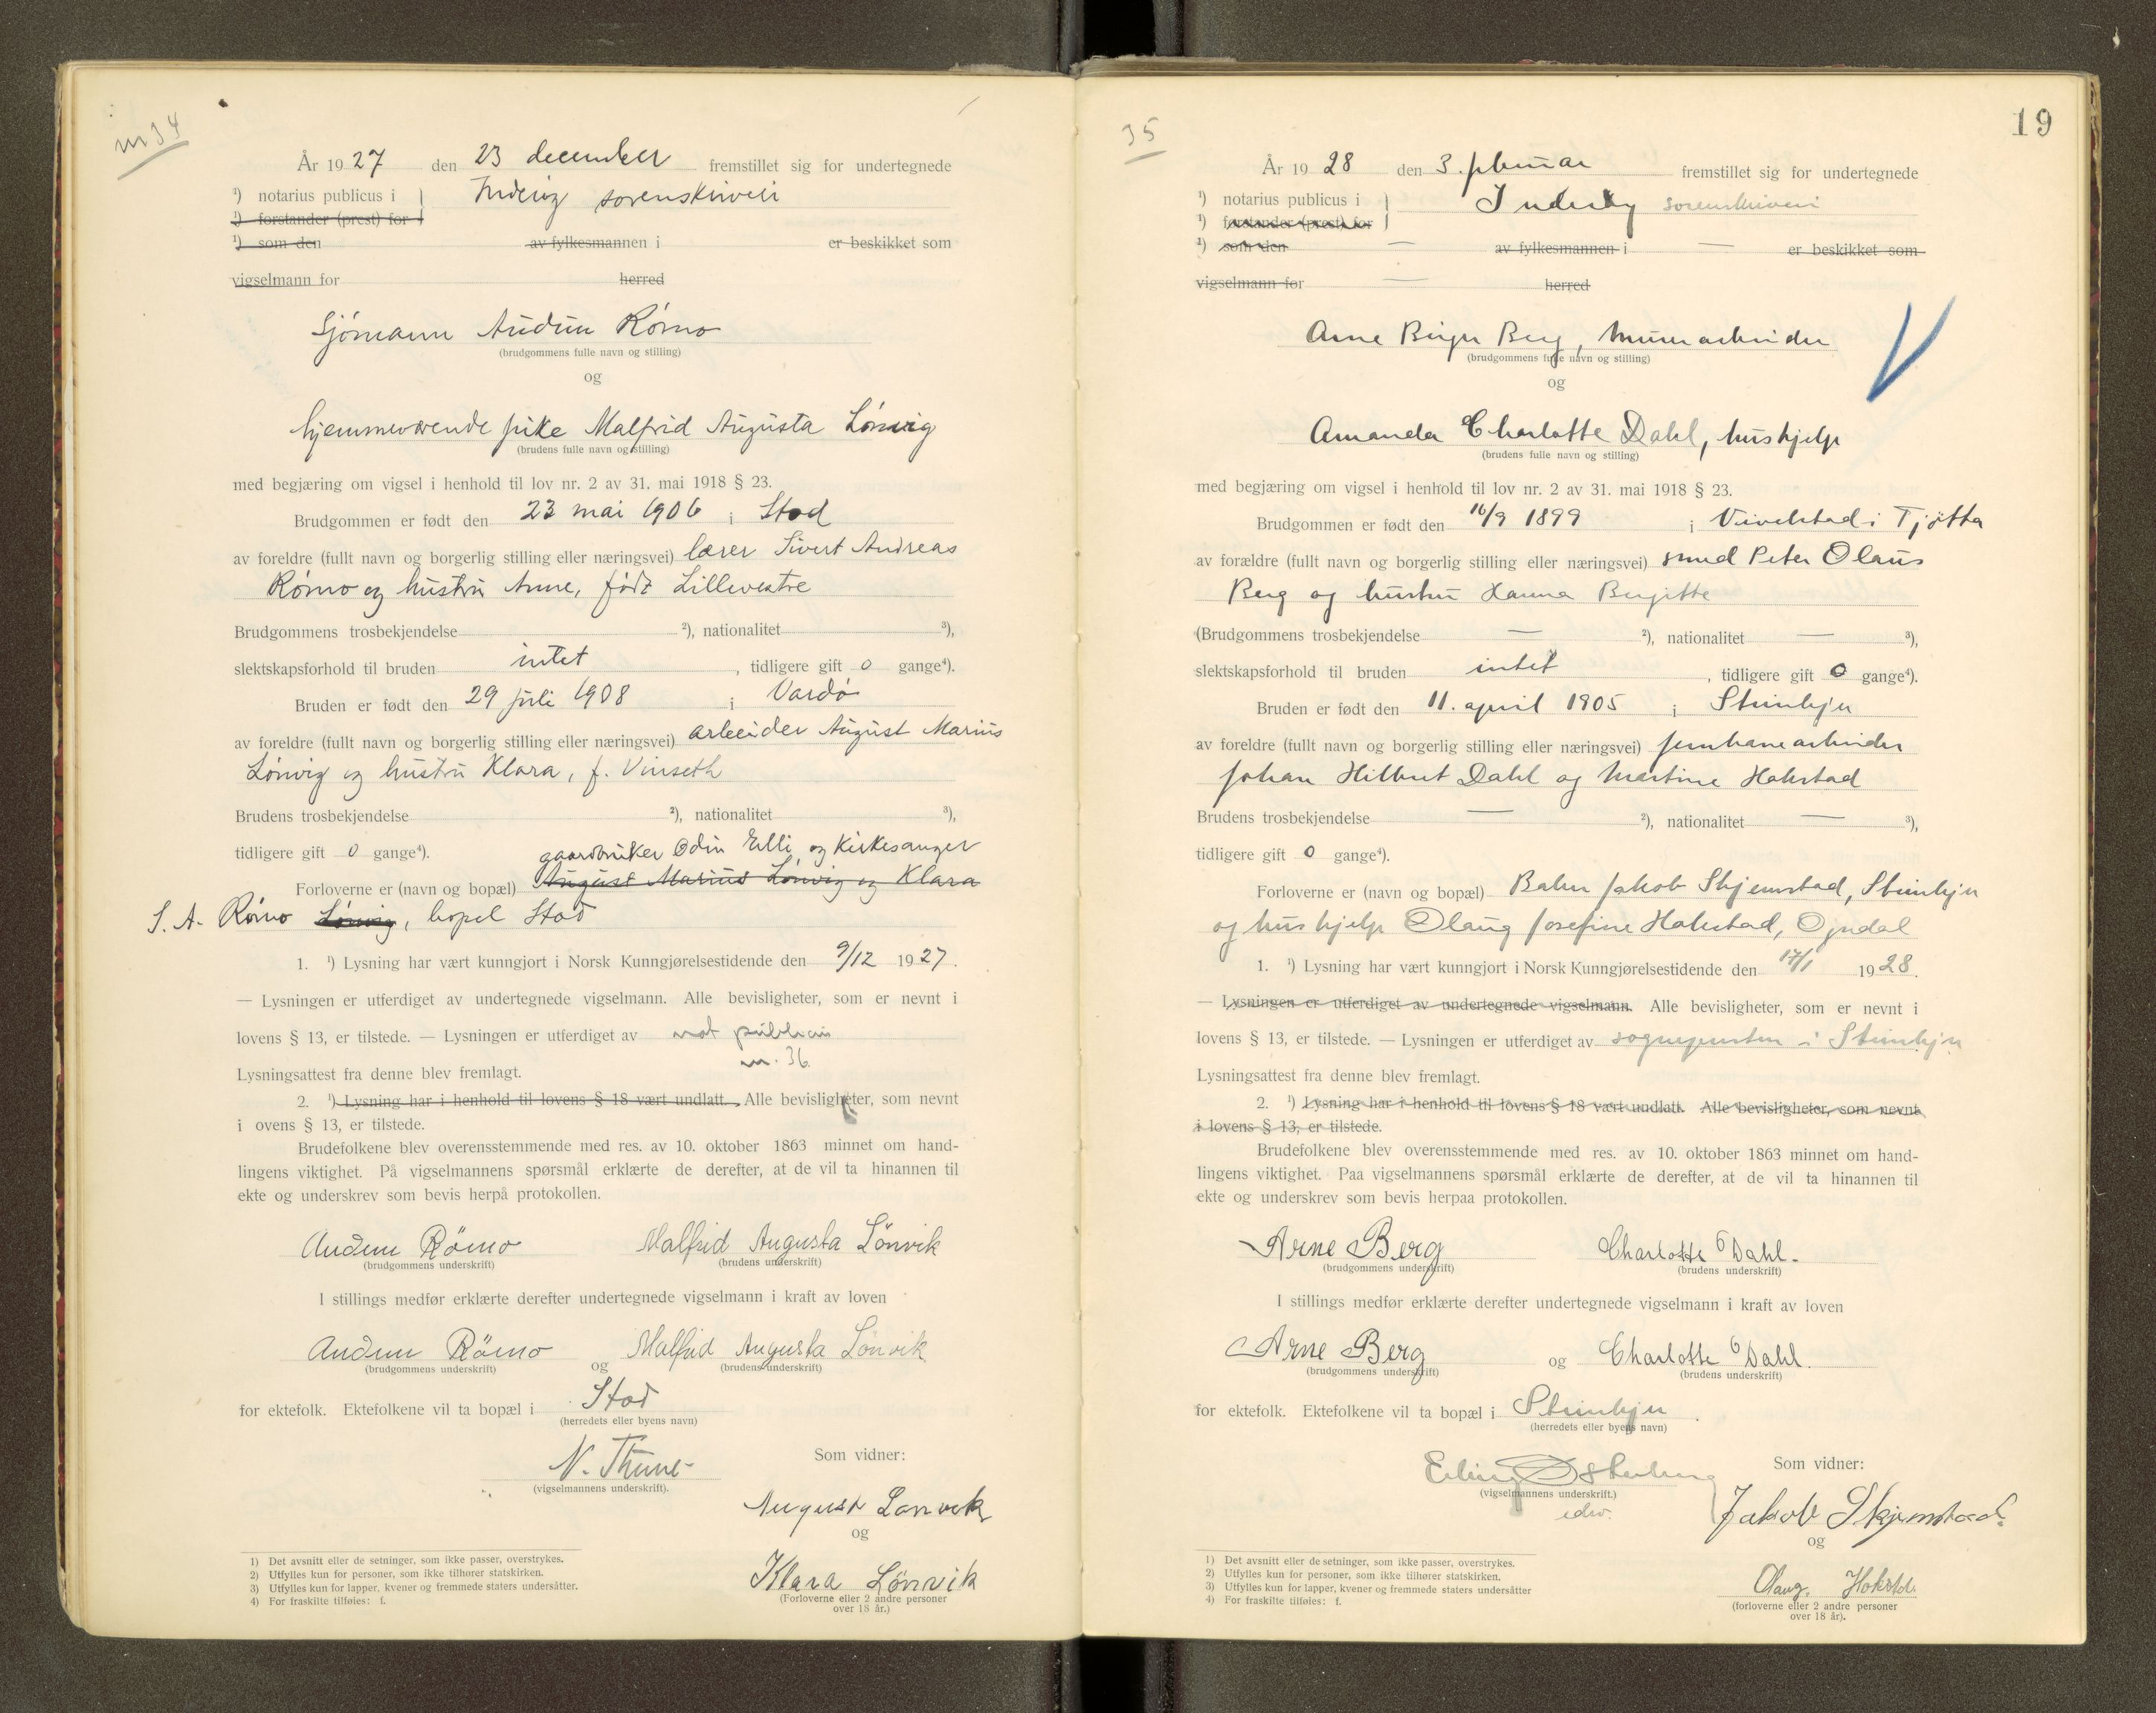 nr 34
År 1927 den 23 december fremstillet sig for undertegnede
¹) notarius publicus i } Inderøy sorenskriveri
¹) forstander (prest) for
¹) som den av fylkesmannen i er beskikket som
vigselmann for herred
Sjómann Audun Rómo
(brudgommens fulle navn og stilling)
og
hjemmeværende pike Malfrid Augusta Lónvig
(brudens fulle navn og stilling)
med begjæring om vigsel i henhold til lov nr. 2 av 31. mai 1918 § 23.
Brudgommen er født den 23 mai 1906 i Stod
av foreldre (fullt navn og borgerlig stilling eller næringsvei) lærer Sivert Andreas
Rómo og hustru Anne, født Lillevestre
Brudgommens trosbekjendelse ²), nationalitet ³),
slektskapsforhold til bruden intet, tidligere gift 0 gange⁴).
Bruden er født den 29 juli 1908 i Vardó
av foreldre (fullt navn og borgerlig stilling eller næringsvei) arbeider August Marius
Lónvig og hustru Klara, f. Vinseth
Brudens trosbekjendelse ²), nationalitet ³),
tidligere gift 0 gange⁴). gaardbruker Odin Elli og Kirkesanger
Forloverne er (navn og bopæl) August Marius Lónvig og Klara
S. A. Rómo Lónvig, bopel Stod
1. ¹) Lysning har vært kunngjort i Norsk Kunngjørelsestidende den 9/12 1927.
— Lysningen er utferdiget av undertegnede vigselmann. Alle bevisligheter, som er nevnt i
lovens § 13, er tilstede. — Lysningen er utferdiget av not publicus
nr. 36
Lysningsattest fra denne blev fremlagt.
2. ¹) Lysning har i henhold til lovens § 18 vært undlatt. Alle bevisligheter, som nevnt
i ovens § 13, er tilstede.
Brudefolkene blev overensstemmende med res. av 10. oktober 1863 minnet om hand-
lingens viktighet. På vigselmannens spørsmål erklærte de derefter, at de vil ta hinannen til
ekte og underskrev som bevis herpå protokollen.
Audun Römo Malfrid Augusta Lönvik
(brudgommens underskrift) (brudens underskrift)
I stillings medfør erklærte derefter undertegnede vigselmann i kraft av loven
Audun Römo og Malfrid Augusta Lönvik
(brudgommens underskrift) (brudens underskrift)
for ektefolk. Ektefolkene vil ta bopæl i Stod
(herredets eller byens navn)
N. Thune Som vidner:
(vigselmannens underskrift).
August Lönvik
og
Klara Lönvik
(Forloverne eller 2 andre personer
over 18 år.)
1) Det avsnitt eller de setninger, som ikke passer, overstrykes.
2) Utfylles kun for personer, som ikke tilhører statskirken.
3) Utfylles kun for lapper, kvener og fremmede staters undersåtter.
4) For fraskilte tilføies: f.
35
19
År 1928 den 3. februar fremstillet sig for undertegnede
¹) notarius publicus i } Inderøy sorenskriveri
¹) forstander (prest) for
¹) som den — av fylkesmannen i — er beskikket som
vigselmann for — herred
Arne Birger Berg, murerarbeider
(brudgommens fulle navn og stilling)
og
Amanda Charlotte Dahl, hushjelp
(brudens fulle navn og stilling)
med begjæring om vigsel i henhold til lov nr. 2 av 31. mai 1918 § 23.
Brudgommen er født den 16/9 1899 i Vivelstad i Tjøtta
av forældre (fullt navn og borgerlig stilling eller næringsvei) smed Peter Olaus
Berg og hustru Hanna Bergitte
(Brudgommens trosbekjendelse — ²), nationalitet — ³),
slektskapsforhold til bruden intet, tidligere gift 0 gange⁴).
Bruden er født den 11. april 1905 i Steinkjer
av foreldre (fullt navn og borgerlig stilling eller næringsvei) jernbanearbeider
Johan Hilbert Dahl og Martine Hokstad
Brudens trosbekjendelse — ²), nationalitet — ³),
tidligere gift 0 gange⁴).
Forloverne er (navn og bopæl) Baker Jakob Skjemstad, Steinkjer
og hushjelp Olaug Josefine Hokstad, Ogndal
1. ¹) Lysning har vært kunngjort i Norsk Kunngjørelsestidende den 17/1 1928.
— Lysningen er utferdiget av undertegnede vigselmann. Alle bevisligheter, som er nevnt i
lovens § 13, er tilstede. — Lysningen er utferdiget av sognepresten i Steinkjer
Lysningsattest fra denne blev fremlagt.
2. ¹) Lysning har i henhold til lovens § 18 vært undlatt. Alle bevisligheter, som nevnt
i lovens § 13, er tilstede.
Brudefolkene blev overensstemmende med res. av 10. oktober 1863 minnet om hand-
lingens viktighet. Paa vigselmannens spørsmål erklærte de derefter, at de vil ta hinannen til
ekte og underskrev som bevis herpaa protokollen.
Arne Berg Charlotte Dahl.
(brudgommens underskrift) (brudens underskrift)
I stillings medfør erklærte derefter undertegnede vigselmann i kraft av loven
Arne Berg og Charlotte Dahl.
(brudgommens underskrift) (brudens underskrift)
for ektefolk. Ektefolkene vil ta bopæl i Steinkjer.
(herredets eller byens navn)
Erling Som vidner:
(vigselmannens underskrift.)
edsv.
Jakob Skjemstad.
og
Olaug Hokstd.
(forloverne eller 2 andre personer
over 18 år).
1) Det avsnitt eller de setninger, som ikke passer, overstrykes.
2) Utfylles kun for personer, som ikke tilhører statskirken.
3) Utfylles kun for lapper, kvener og fremmede staters undersåtter
4) For fraskilte tilføies: f.